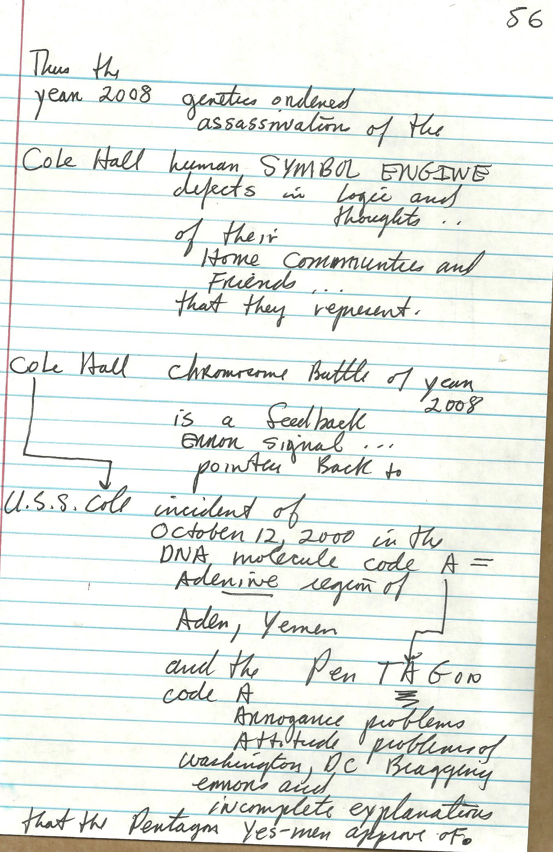 56
Thus the
year 2008 genetics ordered
assassination of the
Cole Hall human SYMBOL ENGINE
defects in logic and
thoughts ..
of their
Home Communties and
Friends ...
that they represent.
Cole Hall chromosome Battle of year
2008
is a feedback
error signal ...
pointer Back to
U.S.S. Cole incident of
October 12, 2000 in the
DNA molecule code A =
Adenine region of
Aden, Yemen
and the Pen TAGon
code A
Arrogance problems
Attitude problems of
Washington, DC Bragging
errors and
incomplete explanations
that the Pentagon Yes-men approve of.